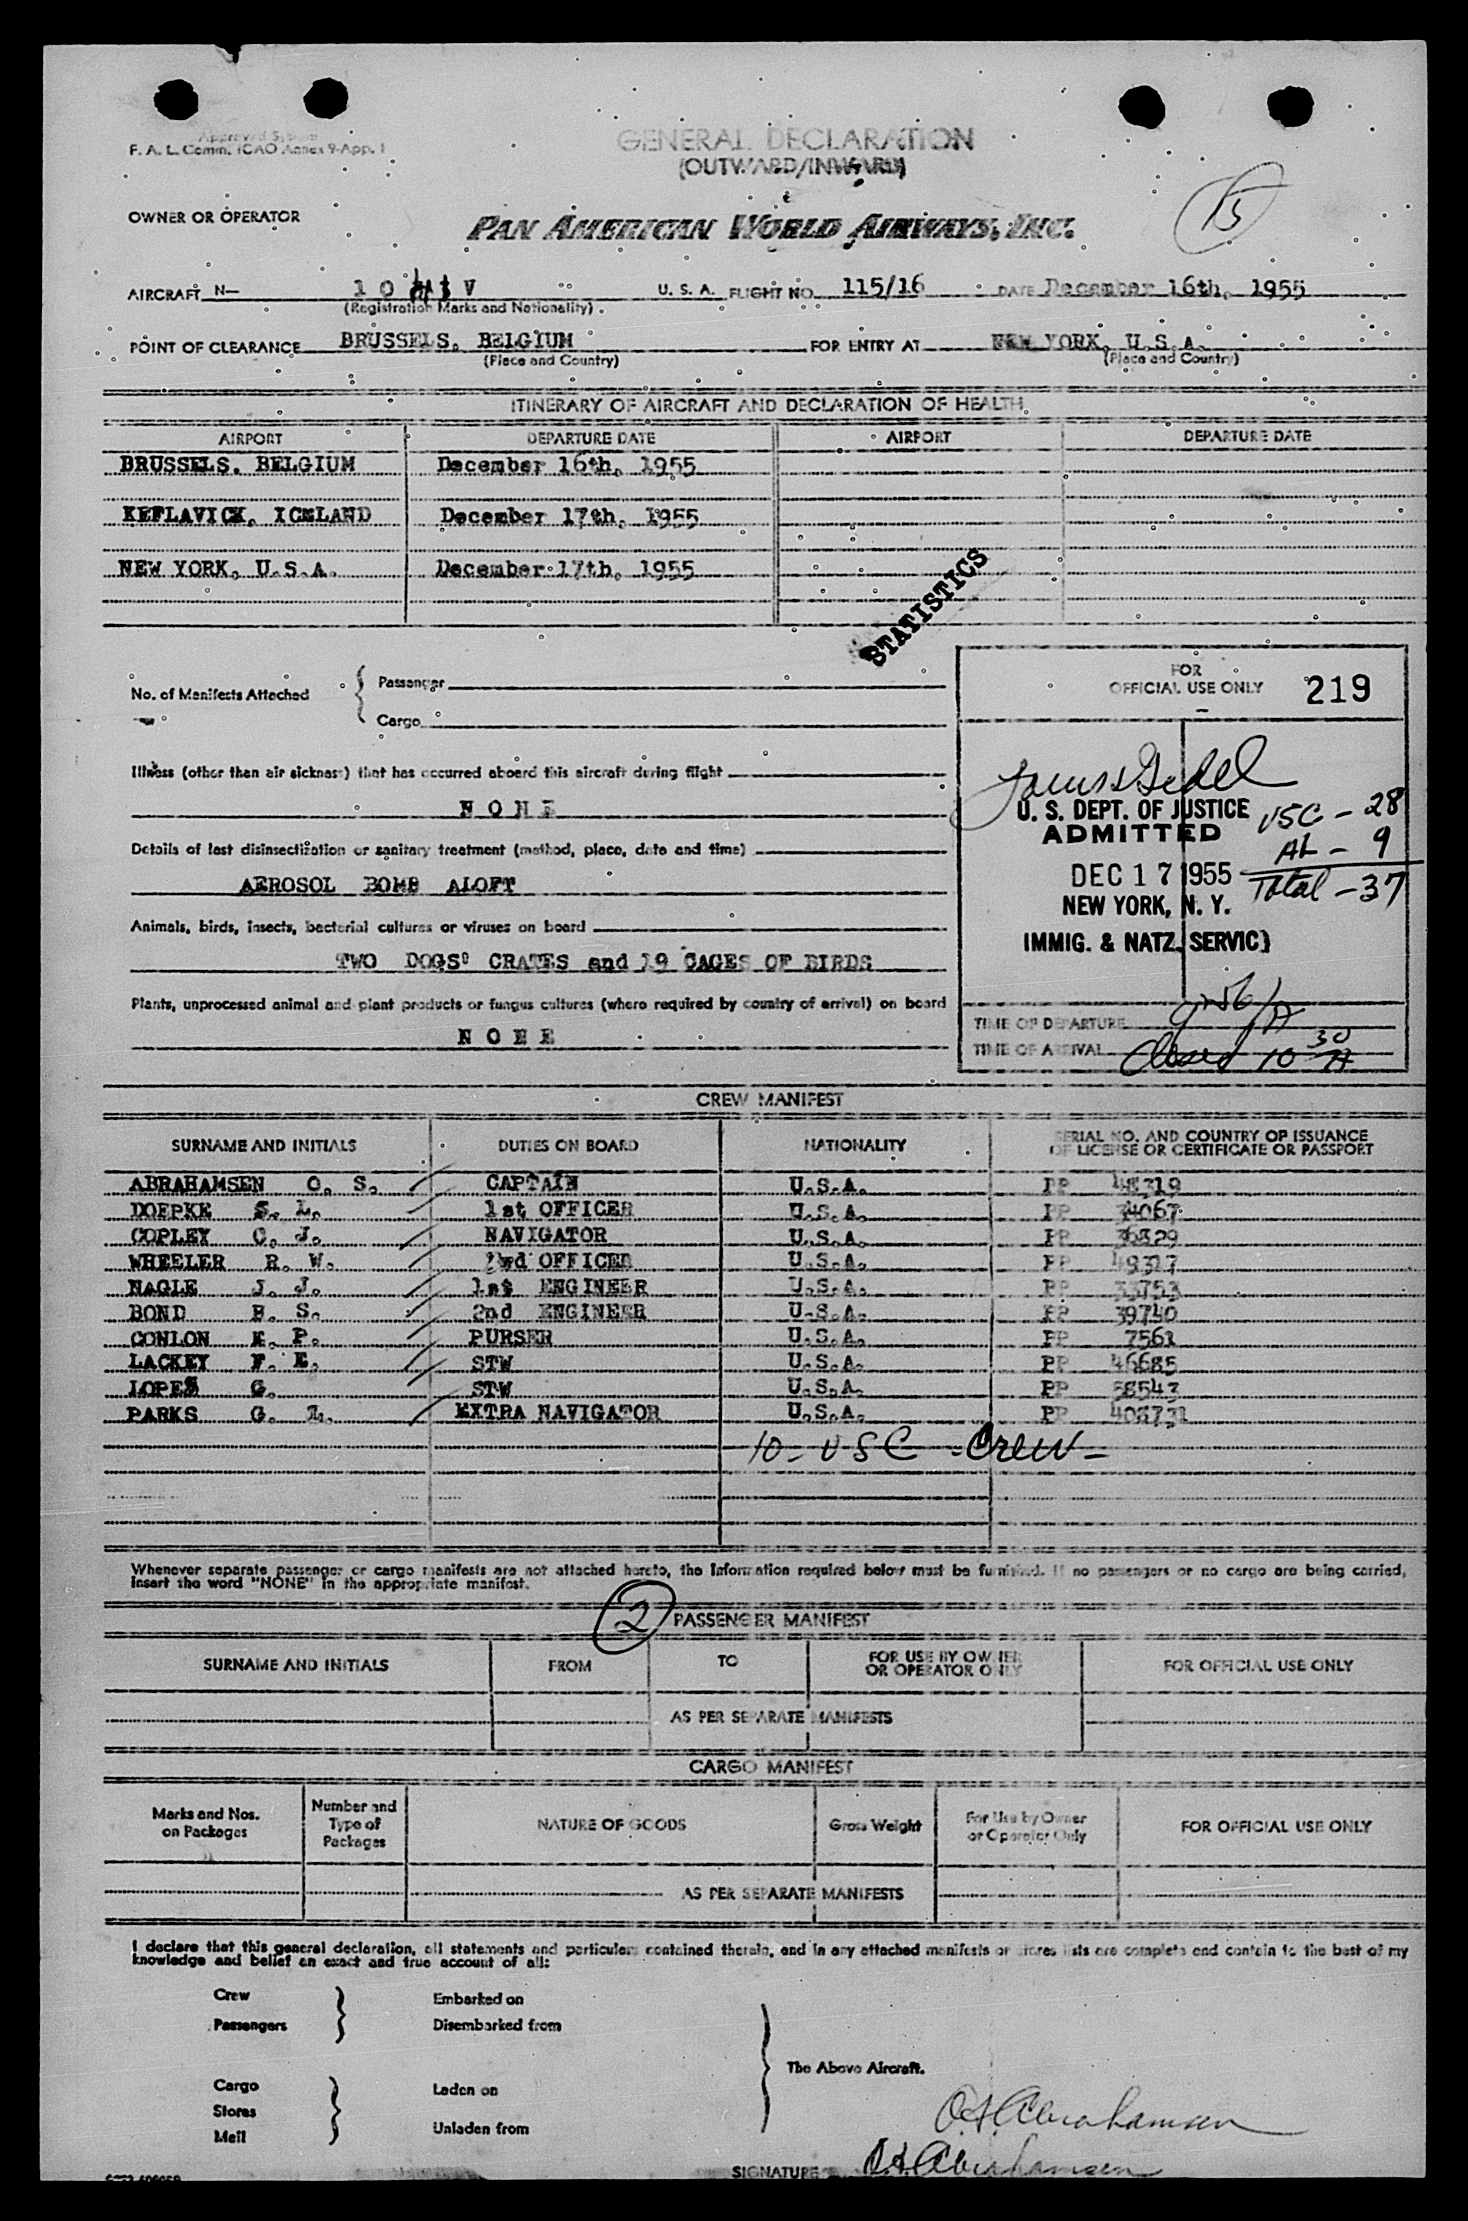 F. A. L. Comm. ICAO Annex 9-App. 1
GENERAL DECLARATION
(OUTWARD/INWARD)
15
OWNER OR OPERATOR
PAN AMERICAN WORLD AIRWAYS, INC.
AIRCRAFT N— 10 V U. S. A. FLIGHT NO. 115/16 DATE December 16th, 1955
(Registration Marks and Nationality)
POINT OF CLEARANCE BRUSSELS, BELGIUM FOR ENTRY AT NEW YORK, U.S.A.
(Place and Country) (Place and Country)
ITINERARY OF AIRCRAFT AND DECLARATION OF HEALTH
AIRPORT DEPARTURE DATE AIRPORT DEPARTURE DATE
BRUSSELS, BELGIUM December 16th, 1955
KEFLAVICK, ICELAND December 17th, 1955
NEW YORK, U.S.A. December 17th, 1955
STATISTICS
No. of Manifests Attached { Passenger
Cargo
FOR
OFFICIAL USE ONLY 219
Illness (other than air sickness) that has occurred aboard this aircraft during flight
NONE
Details of last disinsectization or sanitary treatment (method, place, date and time)
AEROSOL BOMB ALOFT
Animals, birds, insects, bacterial cultures or viruses on board
TWO DOGS' CRATES and 19 CAGES OF BIRDS
Plants, unprocessed animal and plant products or fungus cultures (where required by country of arrival) on board
NONE
U. S. DEPT. OF JUSTICE USC - 28
ADMITTED AL - 9
DEC 17 1955 Total - 37
NEW YORK, N. Y.
IMMIG. & NATZ. SERVICE
TIME OF DEPARTURE 9 56/A
TIME OF ARRIVAL Closed 10 30 A
CREW MANIFEST
SURNAME AND INITIALS DUTIES ON BOARD NATIONALITY SERIAL NO. AND COUNTRY OF ISSUANCE
OF LICENSE OR CERTIFICATE OR PASSPORT
ABRAHAMSEN O. S. CAPTAIN U.S.A. PP 48319
DOEPKE S. L. 1st OFFICER U.S.A. PP 34067
COPLEY C. J. NAVIGATOR U.S.A. PP 36329
WHEELER R. W. OFFICER U.S.A. PP 49317
NAGLE J. J. 1st ENGINEER U.S.A. PP 33753
BOND B. S. 2nd ENGINEER U.S.A. PP 39740
CONLON E. P. PURSER U.S.A. PP 7561
LACKEY F. E. STW U.S.A. PP 46685
LOPES G. STW U.S.A. PP 58543
PARKS G. L. EXTRA NAVIGATOR U.S.A. PP
10 - USC - Crew -
Whenever separate passenger or cargo manifests are not attached hereto, the information required below must be furnished. If no passengers or no cargo are being carried,
insert the word "NONE" in the appropriate manifest.
2 PASSENGER MANIFEST
SURNAME AND INITIALS FROM TO FOR USE BY OWNER
OR OPERATOR ONLY FOR OFFICIAL USE ONLY
AS PER SEPARATE MANIFESTS
CARGO MANIFEST
Marks and Nos.
on Packages Number and
Type of
Packages NATURE OF GOODS Gross Weight For Use by Owner
or Operator Only FOR OFFICIAL USE ONLY
AS PER SEPARATE MANIFESTS
I declare that this general declaration, all statements and particulars contained therein, and in any attached manifests or stores lists are complete and contain to the best of my
knowledge and belief an exact and true account of all:
Crew Embarked on
Passengers Disembarked from
The Above Aircraft.
Cargo Laden on
Stores
Mail Unladen from
O.S. Abrahamsen
SIGNATURE O.S. Abrahamsen